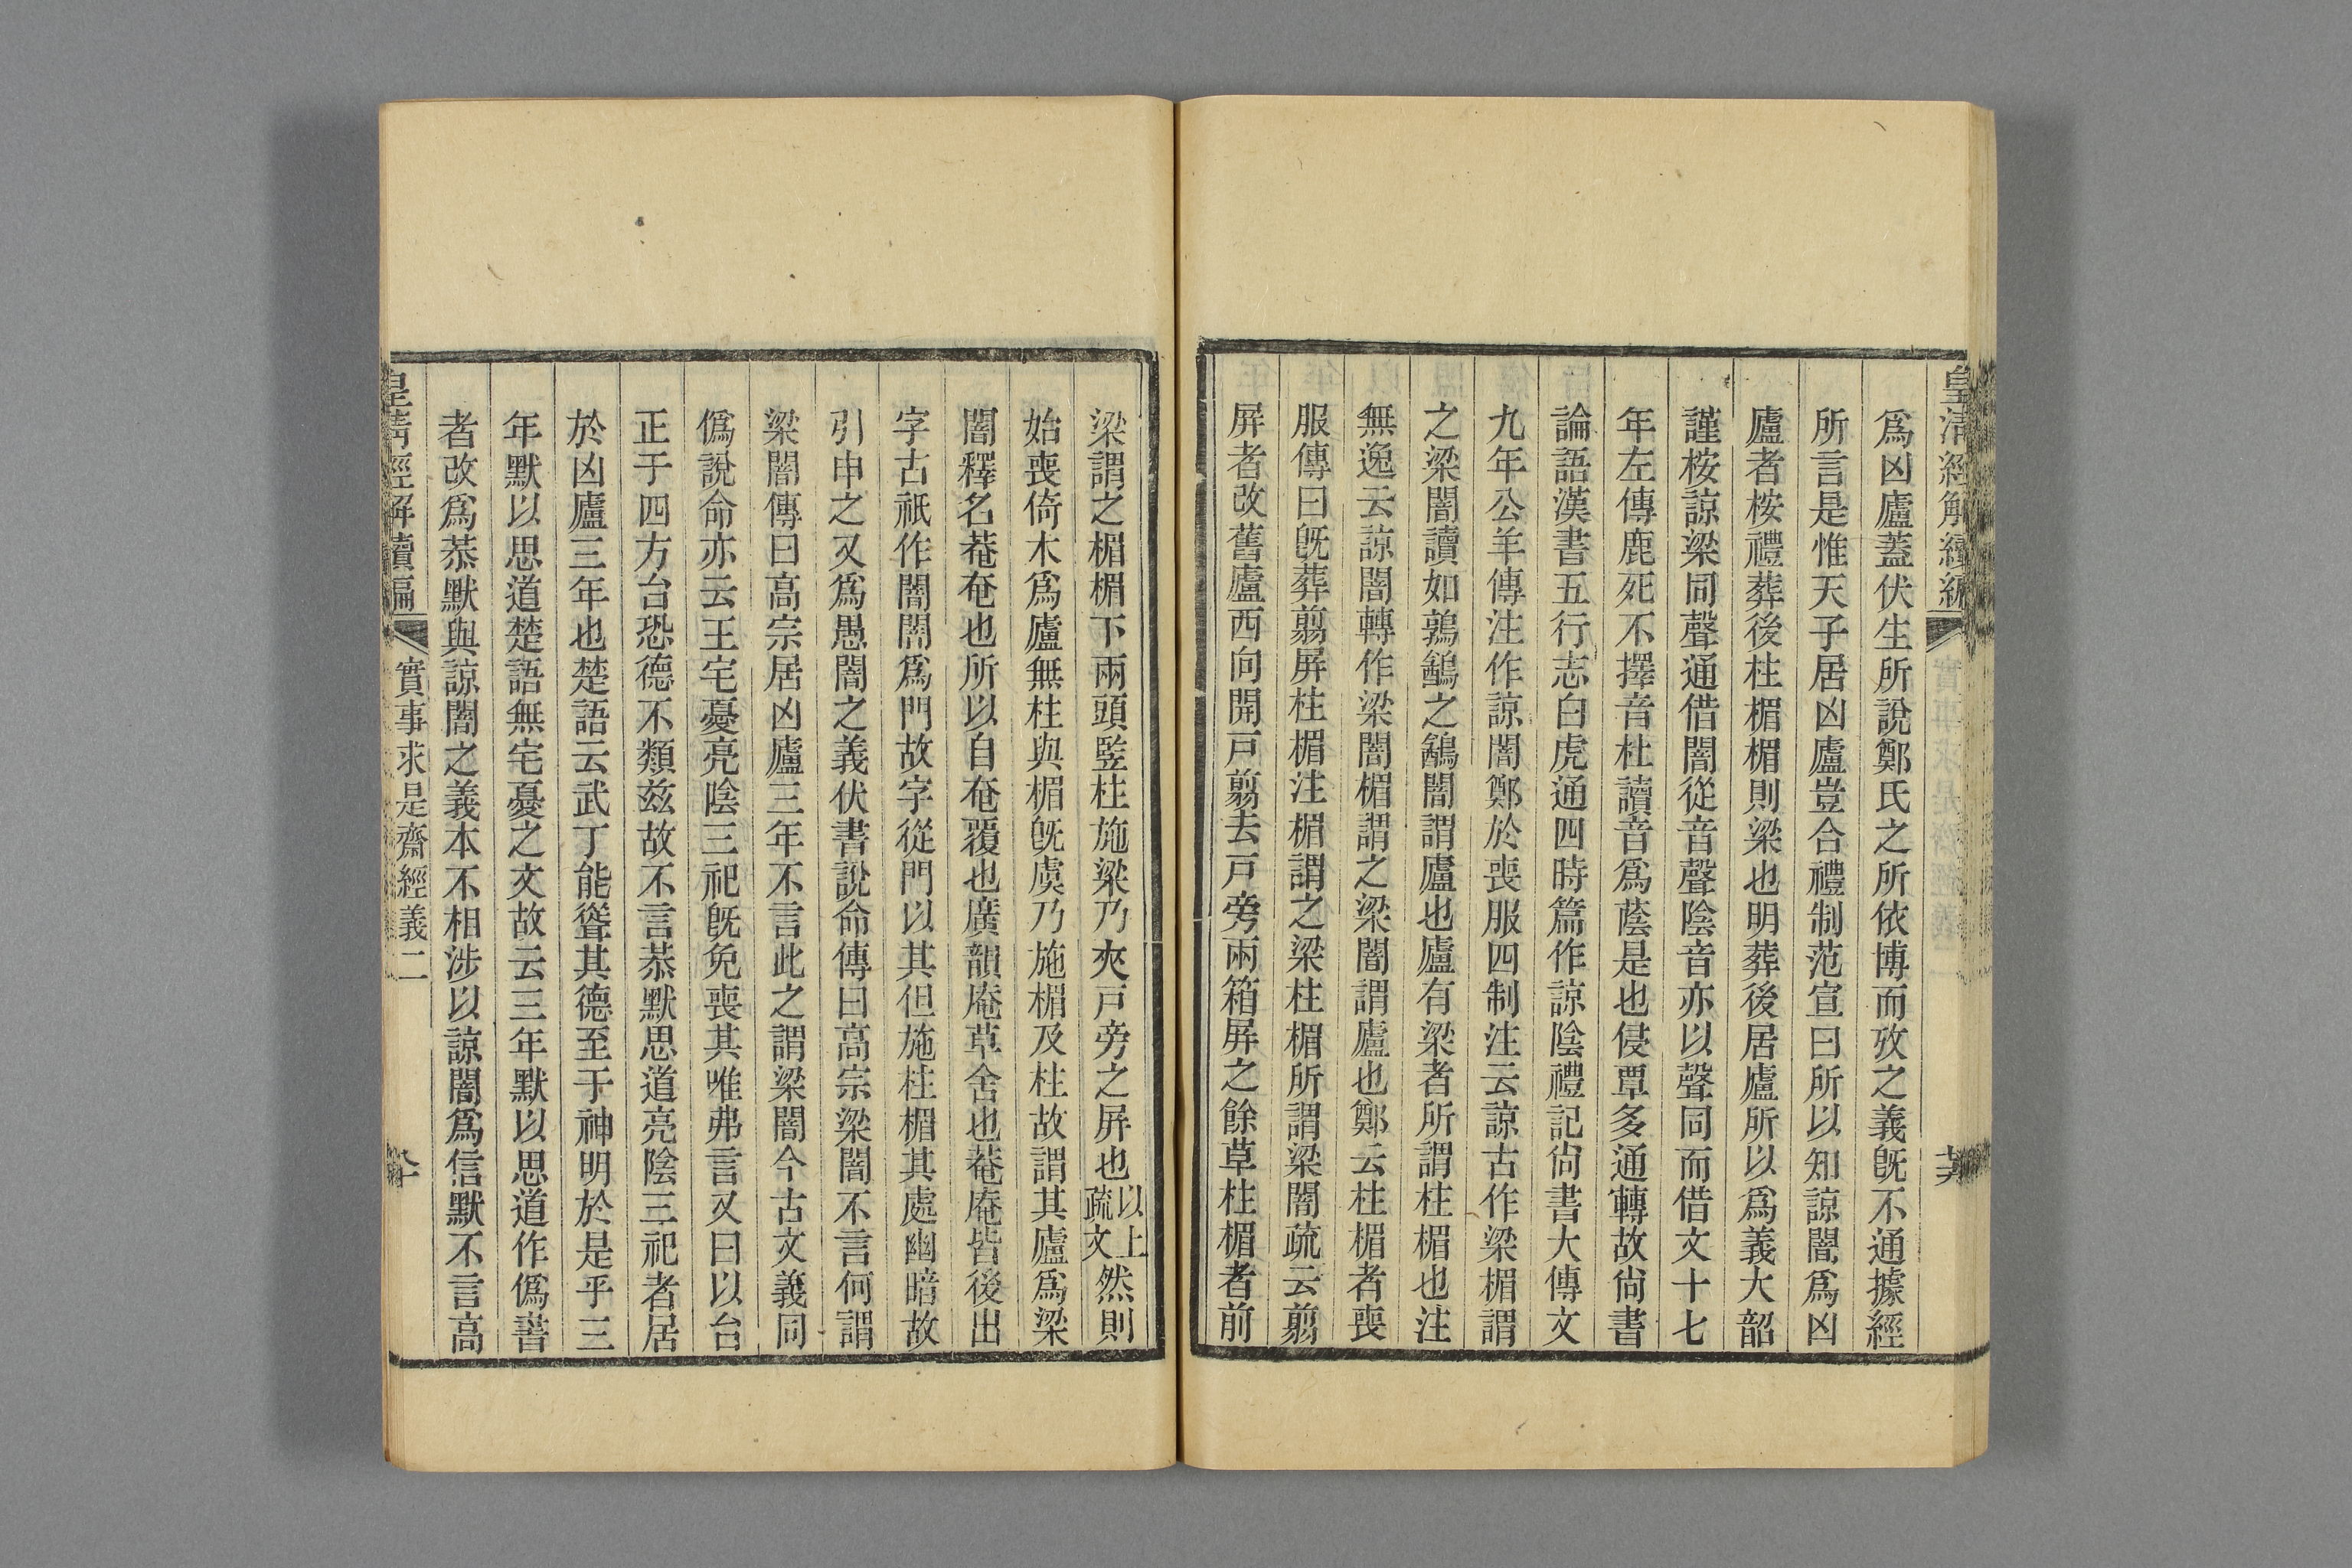 皇清經解續編
爲凶廬蓋伏生所說鄭氏之所依博而攷之義旣不通據經
所言是惟天子居凶廬豈合禮制范宣曰所以知諒闇爲凶
廬者桉禮葬後柱楣楣則梁也明葬後居廬所以爲義大韶
謹桉諒梁同聲通借闇從音聲陰音亦以聲同而借文十七
年左傳鹿死不擇音杜讀音爲蔭是也侵覃多通轉故尙書
論語漢書五行志白虎通四時篇作諒陰禮記尙書大傳文
九年公羊傳注作諒闇鄭於喪服四制注云諒古作梁楣謂
之梁闇讀如鶉鷂之鷂闇謂廬也廬有梁者所謂柱楣也注
無逸云諒闇轉作梁闇楣謂之梁闇謂廬也鄭云柱楣者喪
服傳曰旣葬翦屏柱楣注楣謂之梁柱楣所謂梁闇疏云翦
屏者改舊廬西向開戸翦去戸旁兩箱屏之餘草柱楣者前
梁謂之楣楣下兩頭豎柱施梁乃夾戸旁之屏也以上疏文然則
始喪倚木爲廬無柱與楣旣虞乃施楣及柱故謂其廬爲梁
闇釋名菴奄也所以自奄覆也廣韻庵草舍也菴庵皆後出
字古祇作闇闇爲門故字從門以其但施柱楣其處幽暗故
引申之又爲愚闇之義伏書說命傳曰高宗梁闇不言何謂
梁闇傳曰高宗居凶廬三年不言此之謂梁闇今古文義同
僞說命亦云王宅憂亮陰三祀旣免喪其唯弗言又曰以台
正于四方台恐德不類兹故不言恭默思道亮陰三祀者居
於凶廬三年也楚語云武丁能聳其德至于神明於是乎三
年默以思道楚語無宅憂之文故云三年默以思道作僞書
者改爲恭默與諒闇之義本不相涉以諒闇爲信默不言高
皇清經解續編
實事求是齋經義二